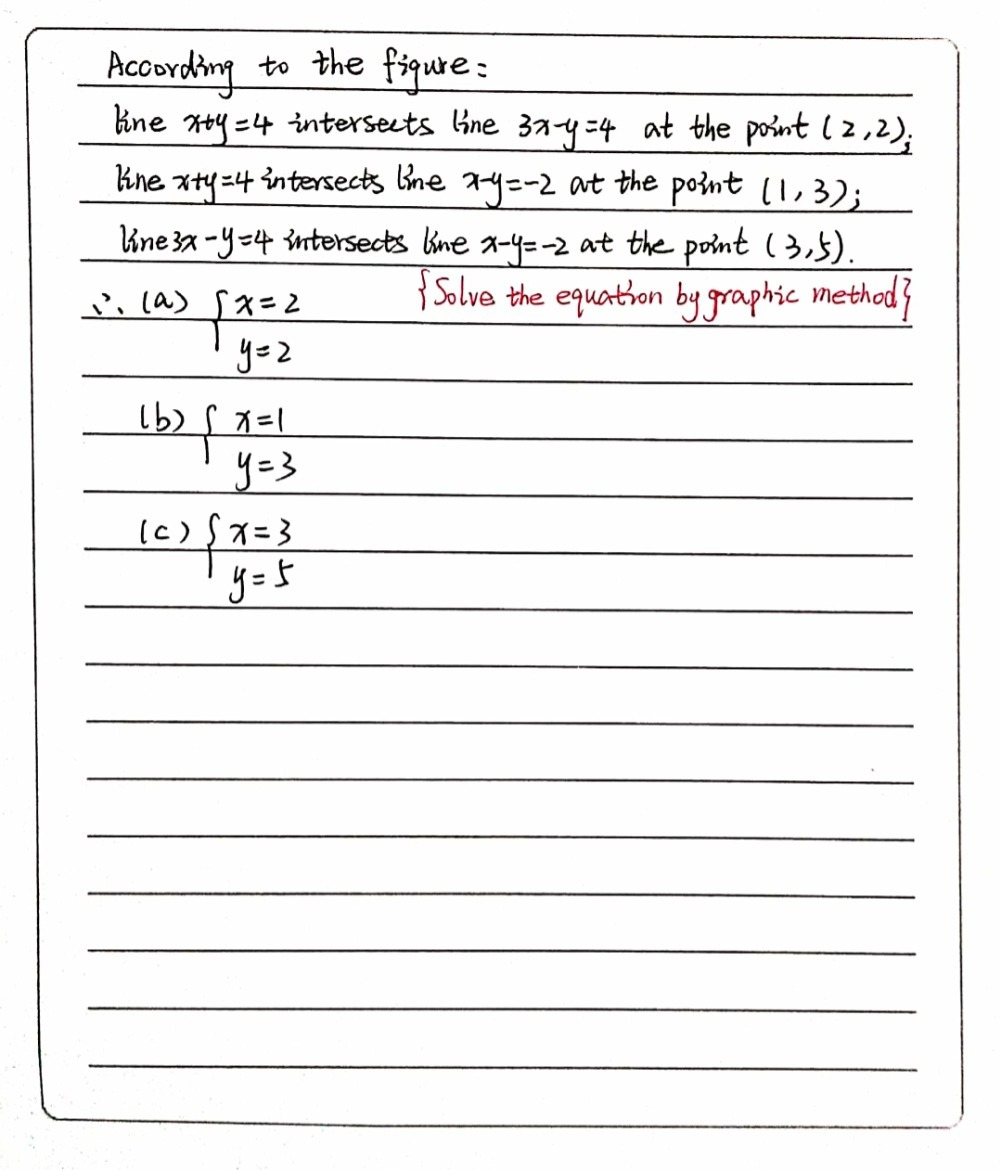 According to the figure:
line x+y=4 intersects line 3x-y=4 at the point (2,2);
line x+y=4 intersects line x-y=-2 at the point (1,3);
line 3x-y=4 intersects line x-y=-2 at the point (3,5).
∴ (a) { x=2 {Solve the equation by graphic method}
y=2
(b) { x=1
y=3
(c) { x=3
y=5